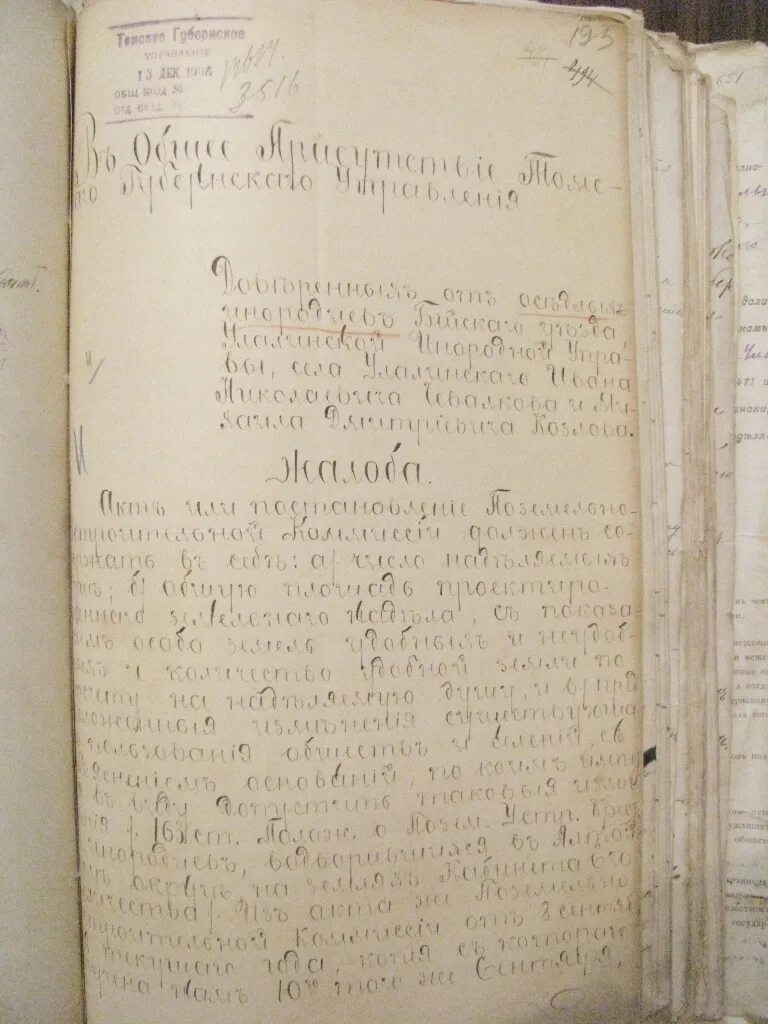 Томское Губернское
УПРАВЛЕНІЕ
13 ДЕК. 1906
ОБЩ. ВХОД. №
ОТД. ВХОД. №
3516
193
494
Въ Общее Присутствіе Томс-
го Губернскаго Управленія
Довѣренныхъ отъ осѣдлыхъ
инородцевъ Бійскаго уѣзда
Улалинской Инородной Упра-
вы, села Улалинскаго Ивана
Николаевича Чевалкова и Ми-
хаила Дмитріевича Козлова.
Жалоба.
Актъ или постановленіе Поземельно-
строительной Коммиссіи долженъ со-
ржать въ себѣ: а) число надѣляемыхъ
б) общую площадь проектиро-
ннаго земельнаго надѣла, съ показа
мъ особо земель удобныхъ и неудоб-
хъ и количество удобной земли по
счету на надѣляемую душу, и в) пред
оженныя измѣненія существующа
пользованія обществъ и селеній, съ
ясненіемъ основаній, по коимъ имѣ
въ виду допустить таковыя измѣ
нія /. 16 ст. Полож. о Позем. Устр. Крес
инородцевъ, водворившихся въ Алтай
округѣ, на земляхъ Кабинета Его
личества/. Изъ акта же Поземельно
строительной Коммиссіи отъ 8 сентя
текущаго года, копія съ котораго
учена намъ 10го того же Сентября,